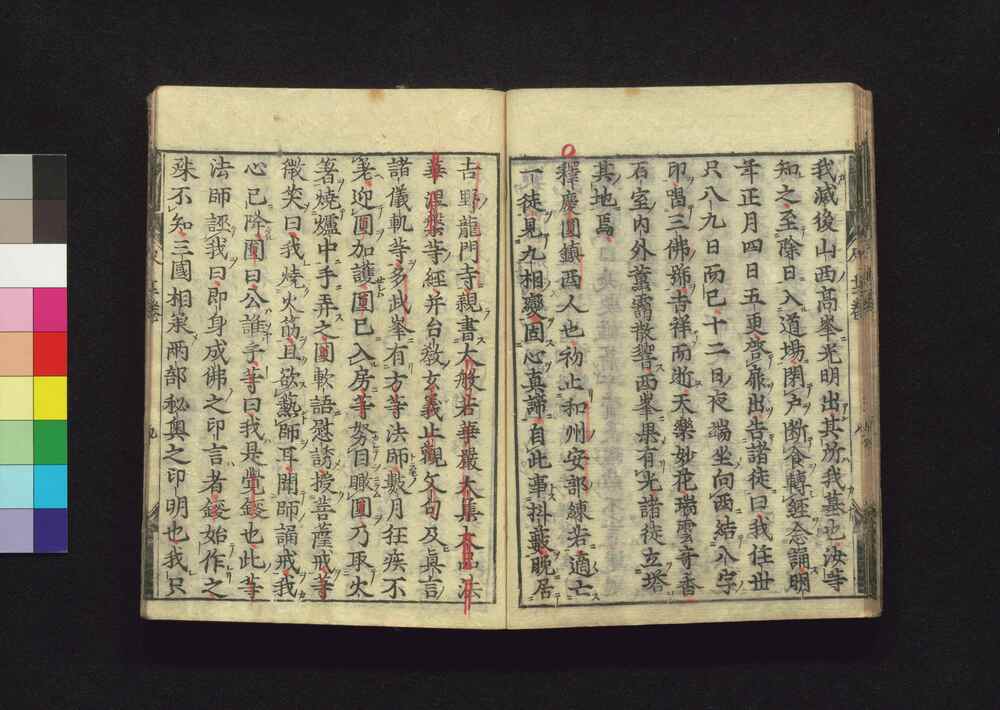 我滅後山西高峯光明出其所我墓也汝等
知之至除日入道場閉户断食轉經念誦明
年正月四日五更啓扉出告諸徒曰我住世
只八九日而已十二日夜端坐向西結八字
印唱三佛號吉祥而逝天樂妙花瑞雲奇香
石室内外薫靄散響西峯果有光諸徒立塔
其地焉
釋慶圓鎮西人也初止和州安部練若適亡
一徒見九相變固心真諦自此事抖藪晩居
吉野龍門寺親書大般若華嚴大集大品法
華涅槃等經并台教玄義止觀文句及眞言
諸儀軌等多此峯有方等法師數月狂疾不
差迎圓加護圓已入房等努目瞰圓乃取火
箸燒爐中手弄之圓軟語慰誘授菩薩戒等
微笑曰我燒火筯且欲熱師耳聞師誦戒我
心已降圓曰公誰乎等曰我是覺鑁也此等
法師誣我曰即身成佛之印言者鑁始作之
殊不知三國相承兩部秘奥之印明也我只